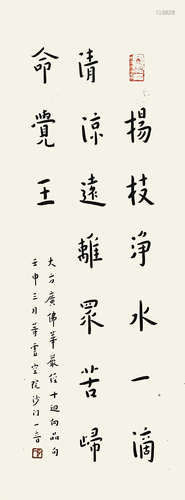 楊枝淨水一滴
清涼遠離眾苦歸
命覺王
大方廣佛華嚴經十迴向品句
壬申三月華雪空院沙门一音